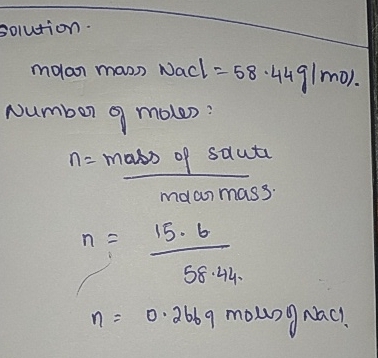 Solution.
molar mass Nacl = 58.44g/mol.
Number of moles:
n = mass of solute
molar mass.
n = 15.6
58.44.
n = 0.2669 moles of Nacl.